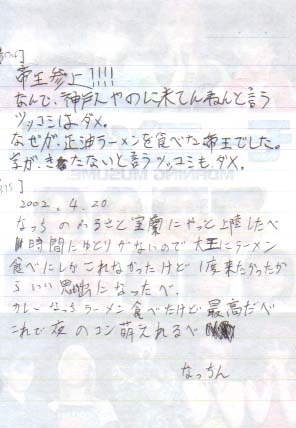 帝王参上!!!!
なんで、神戸人やのに来てんねんと言う
ツッコミはダメ。
なぜか、正油ラーメンを食べた帝王でした。
字が、きたないと言うツッコミも、ダメ。
2002.4.20
なっちのふるさと室蘭にやっと上陸したべ
時間にゆとりがないので大王にラーメン
食べにしかこれなかったけど1度来たかったか
らいい思出になったべ。
カレーなっちラーメン食べたけど最高だべ
これで夜のコン萌えれるべ
なっちん
MORNING MUSUME